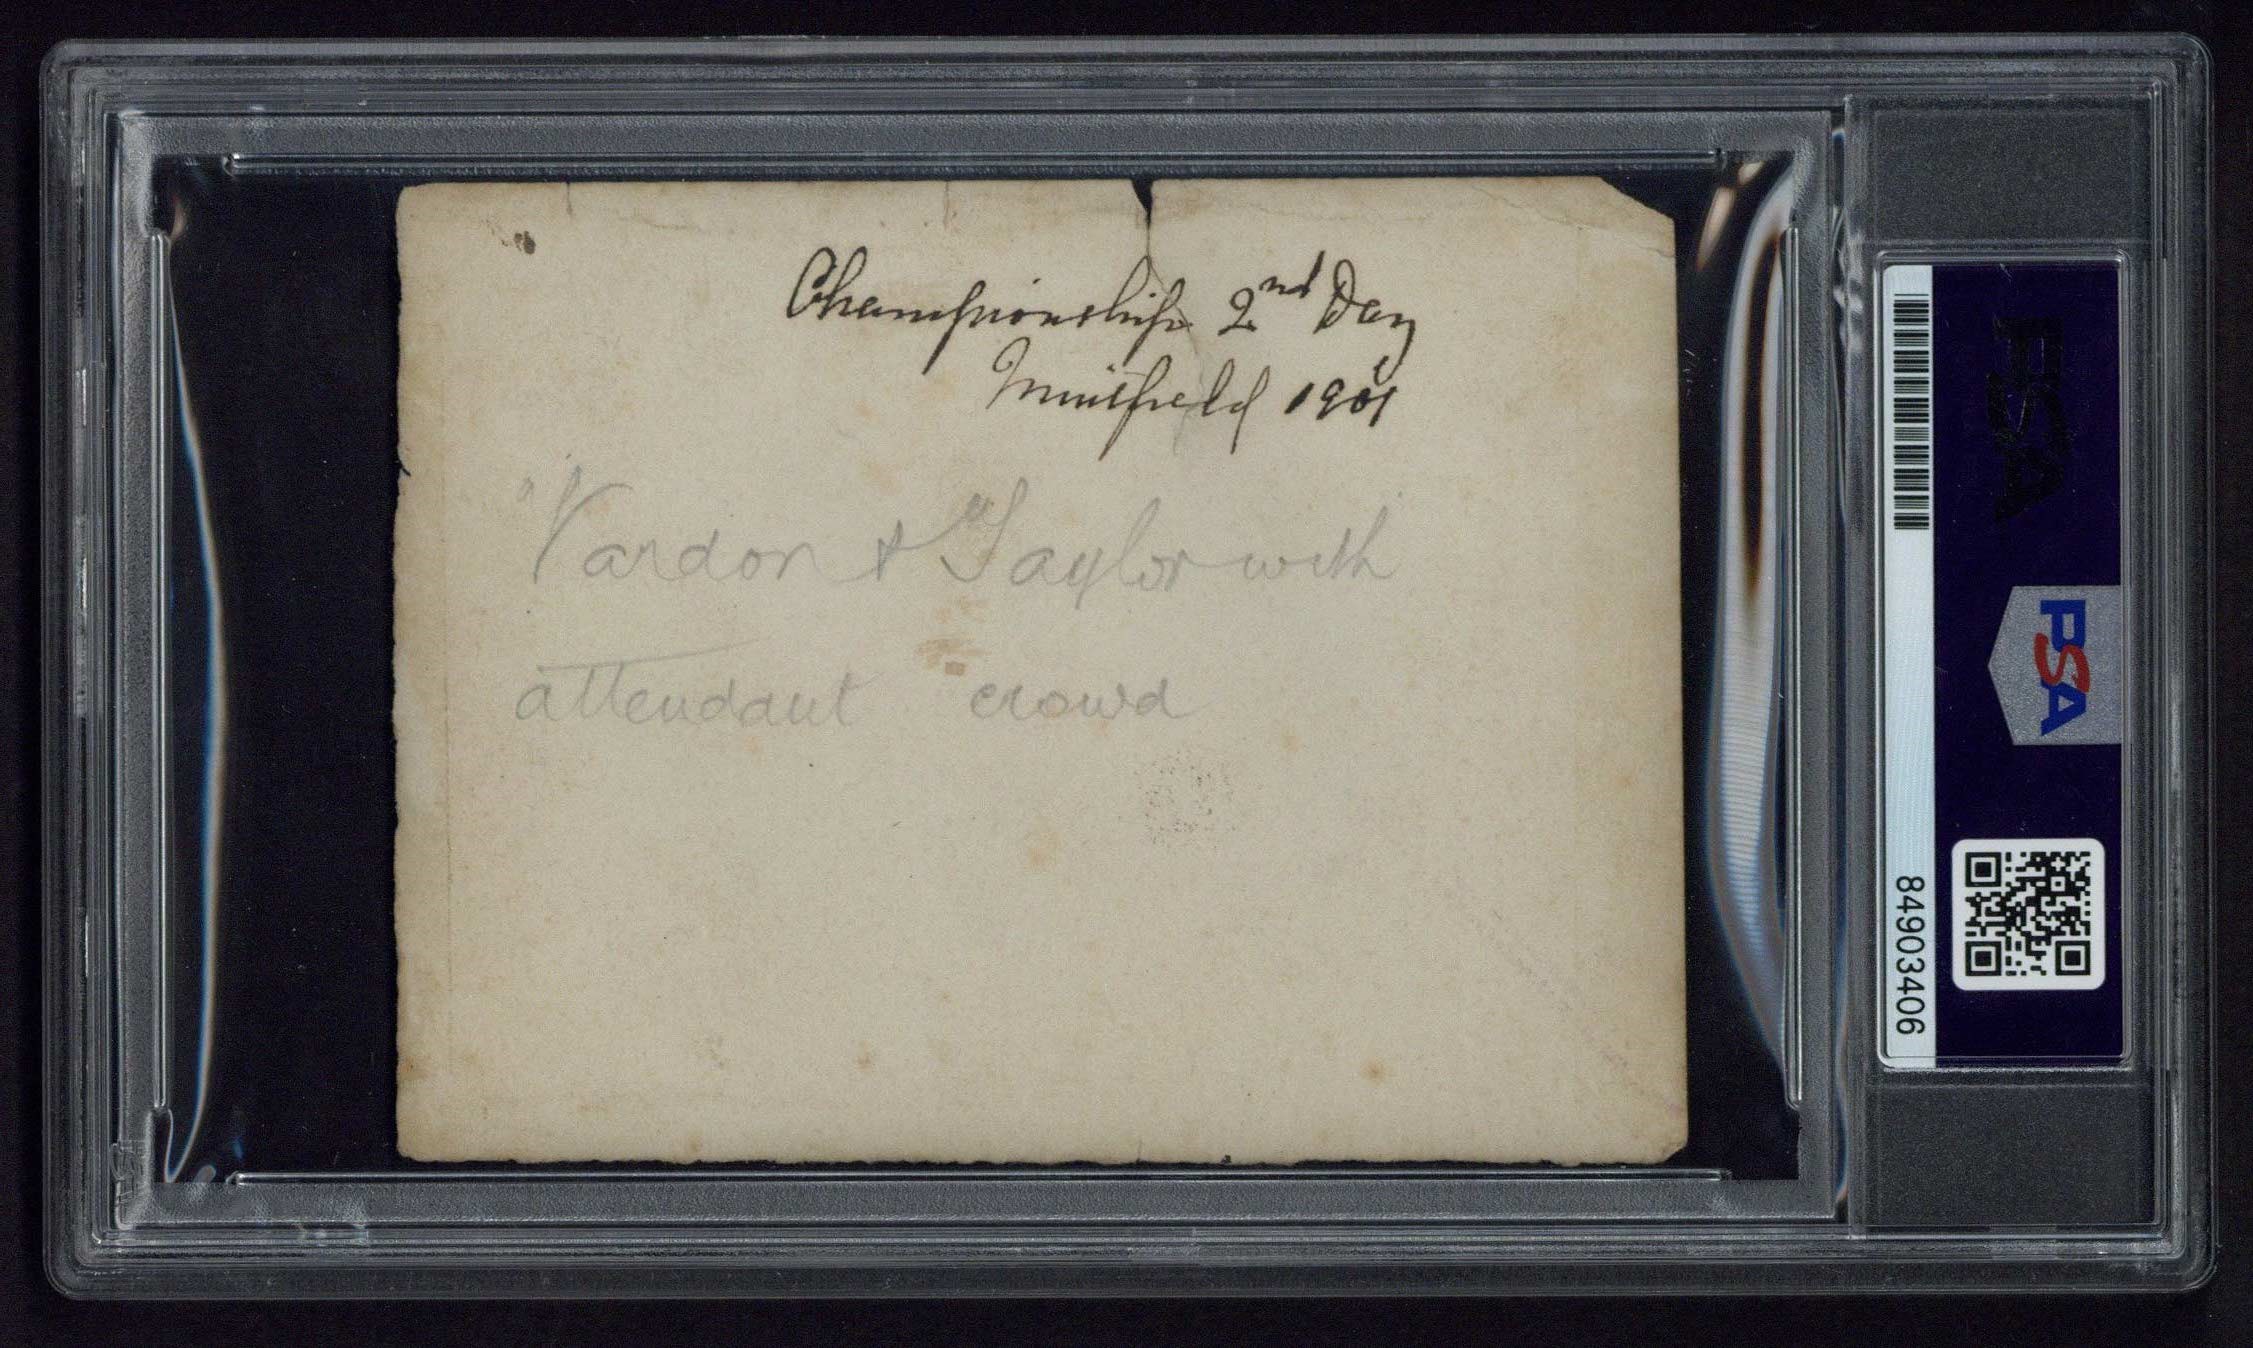 Championship 2nd Day
Muirfield 1901
"Vardon & "Taylor with
attendant crowd
PSA
PSA
84903406